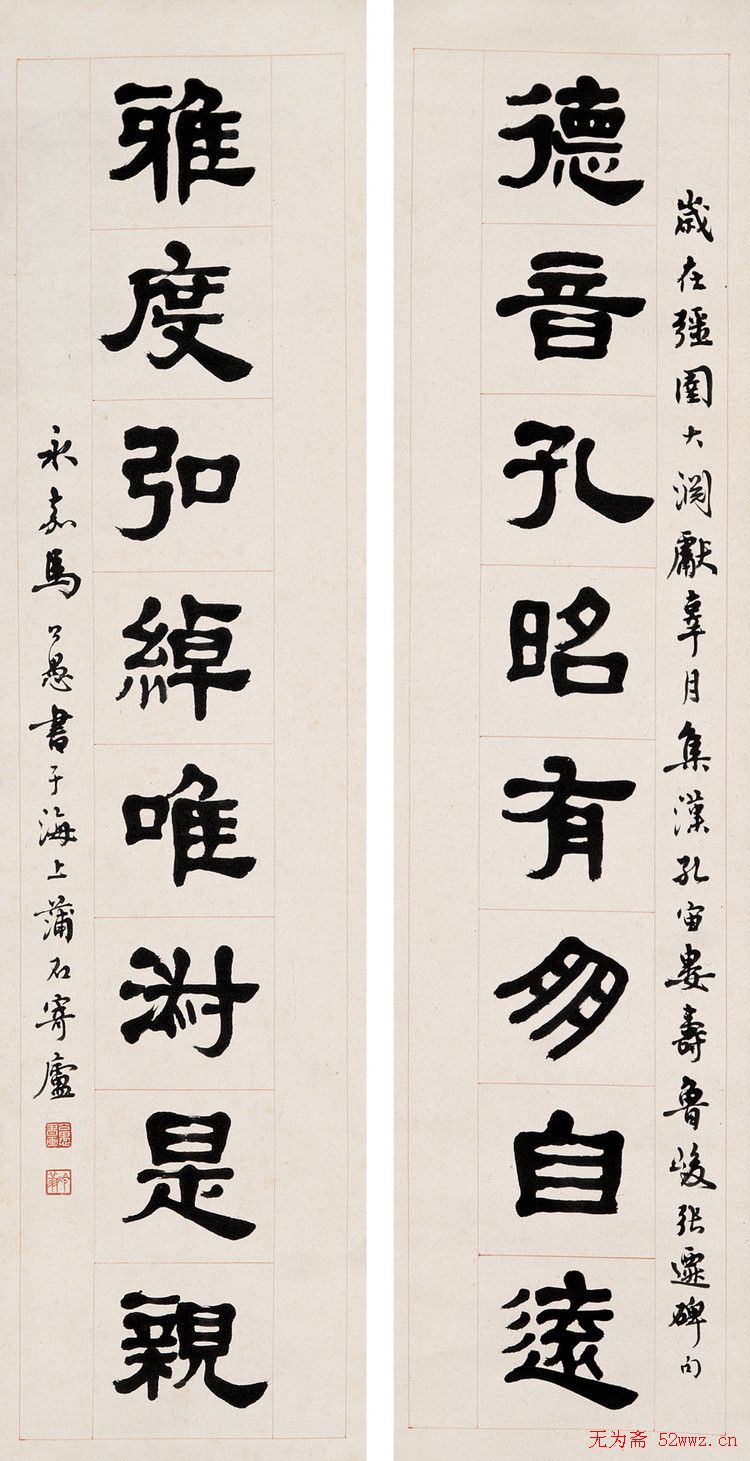 歲在彊圉大淵獻辜月集漢孔宙婁壽魯峻張遷碑句
德音孔昭有朋自遠
雅度弘綽唯淑是親
永嘉馬公愚書于海上蒲石寄廬
无为斋 52wwz.cn